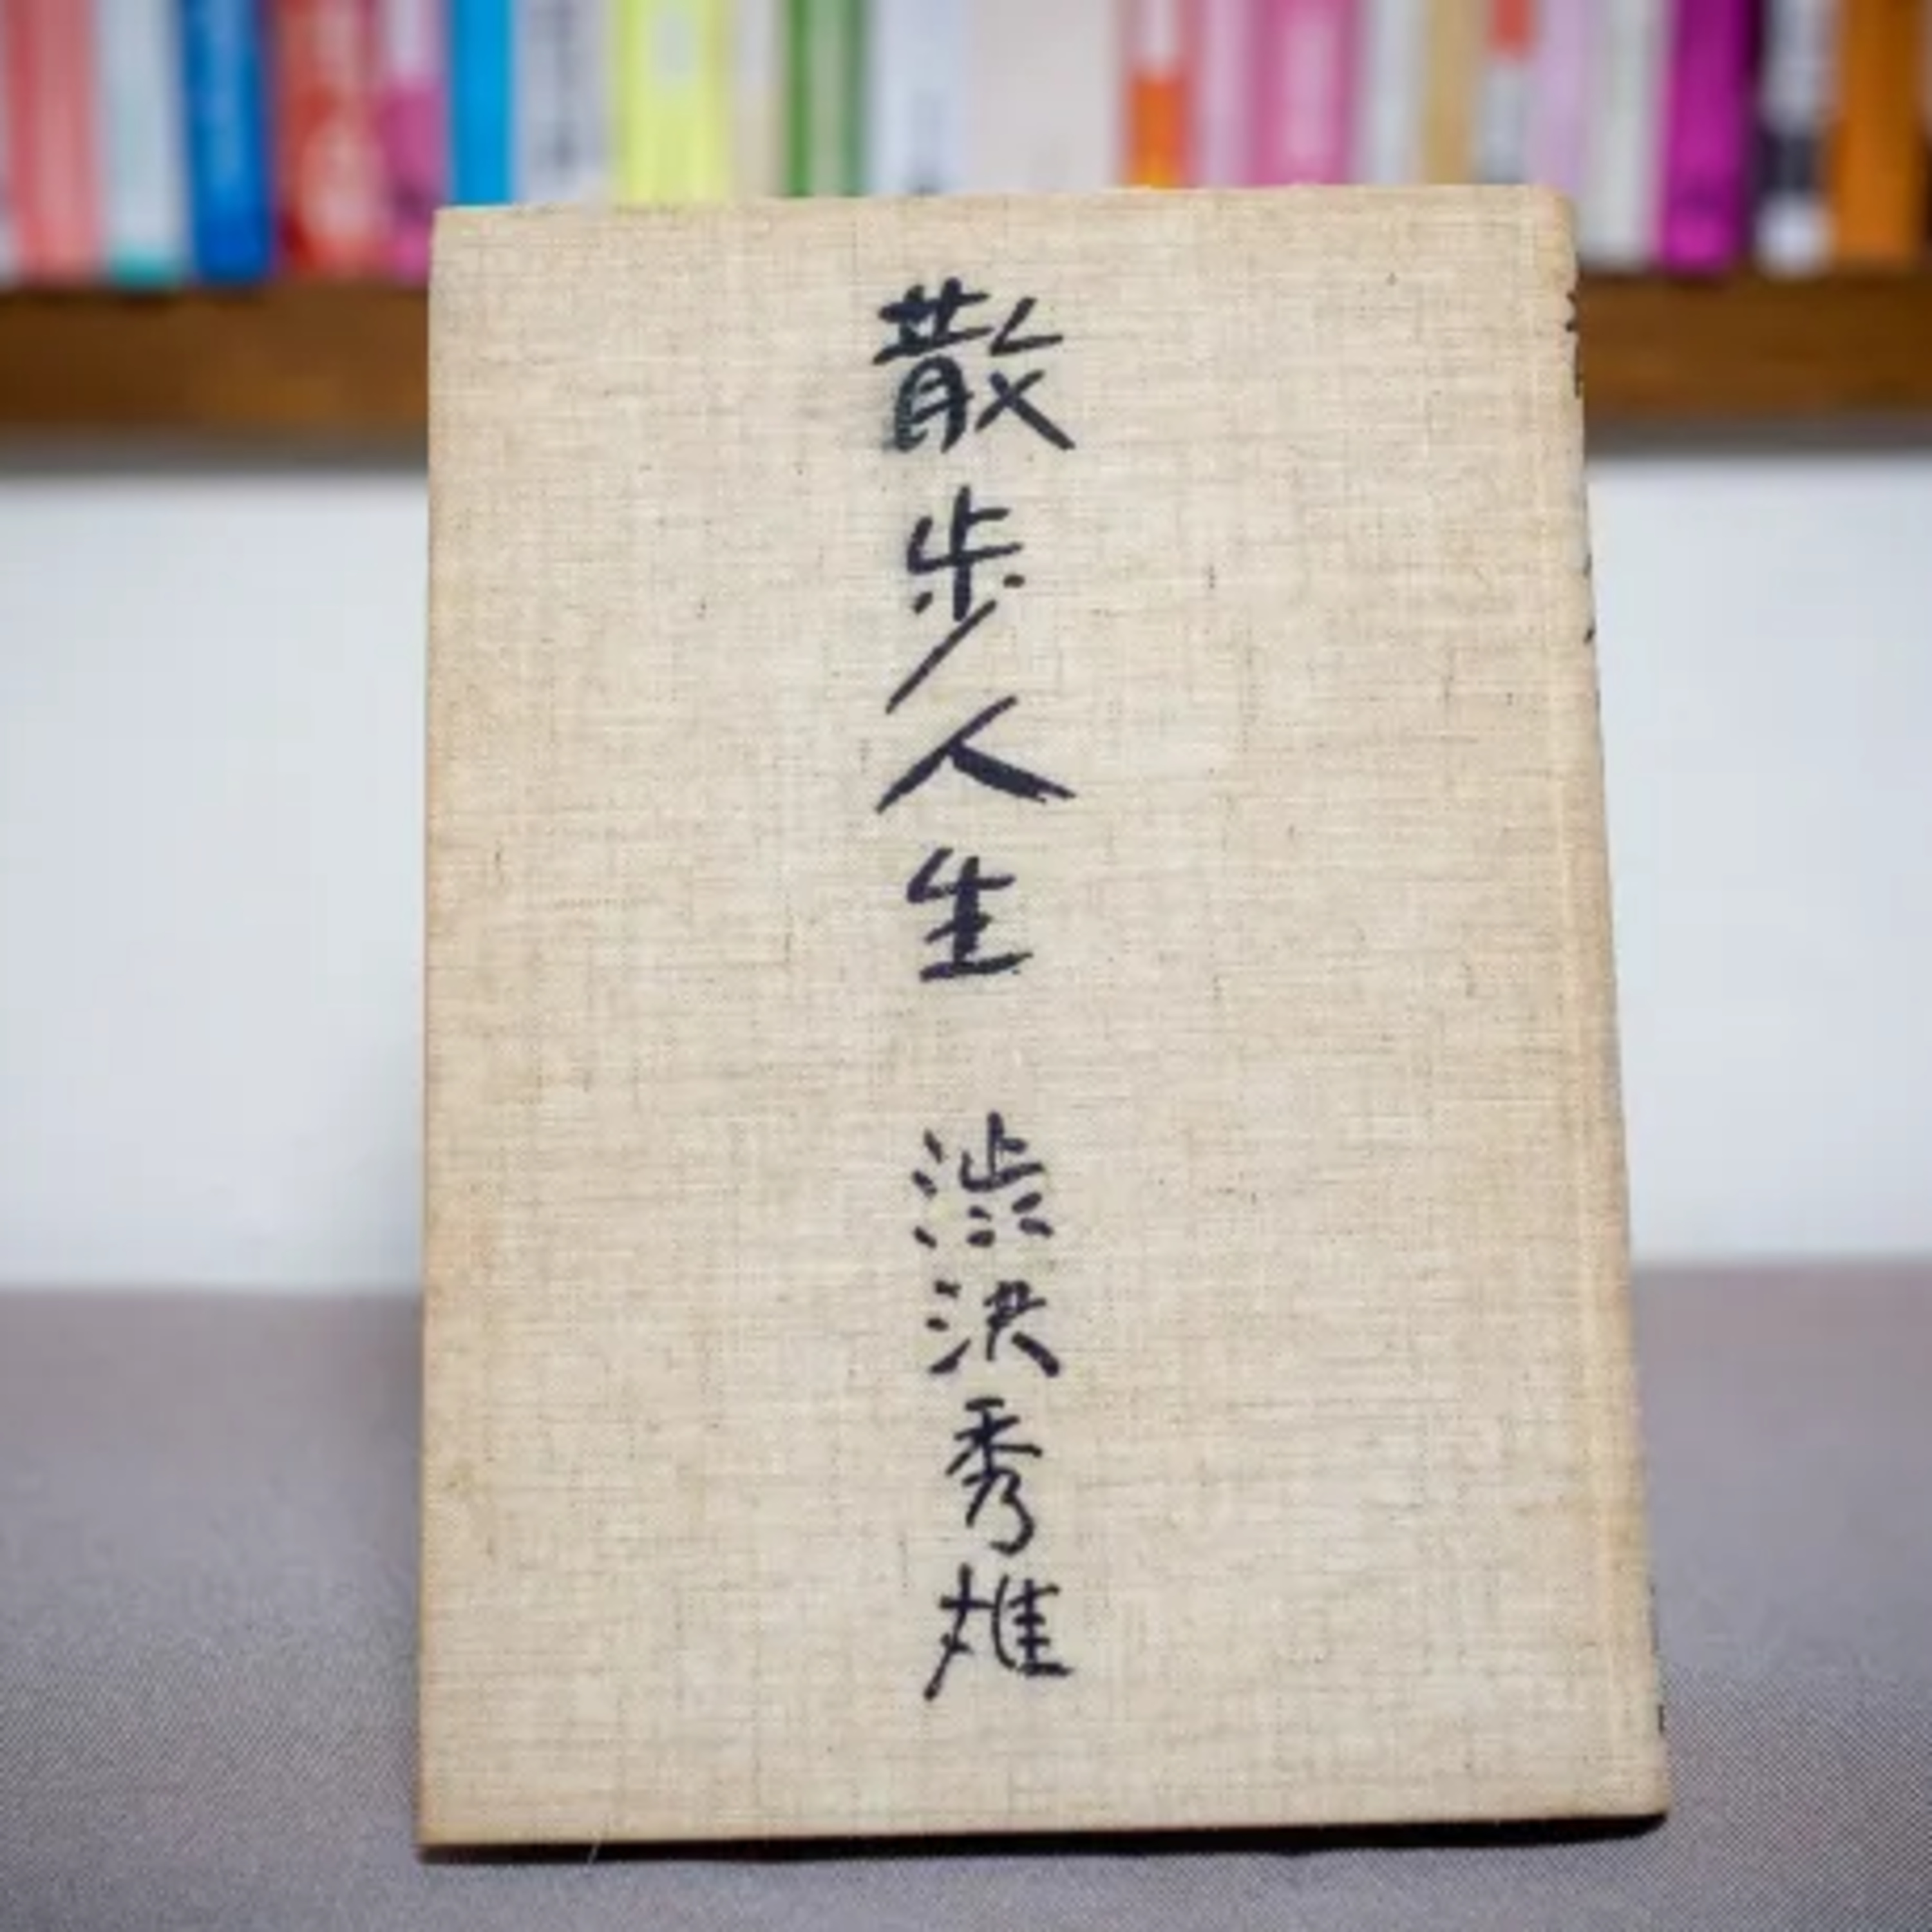 散歩人生 渋沢秀雄